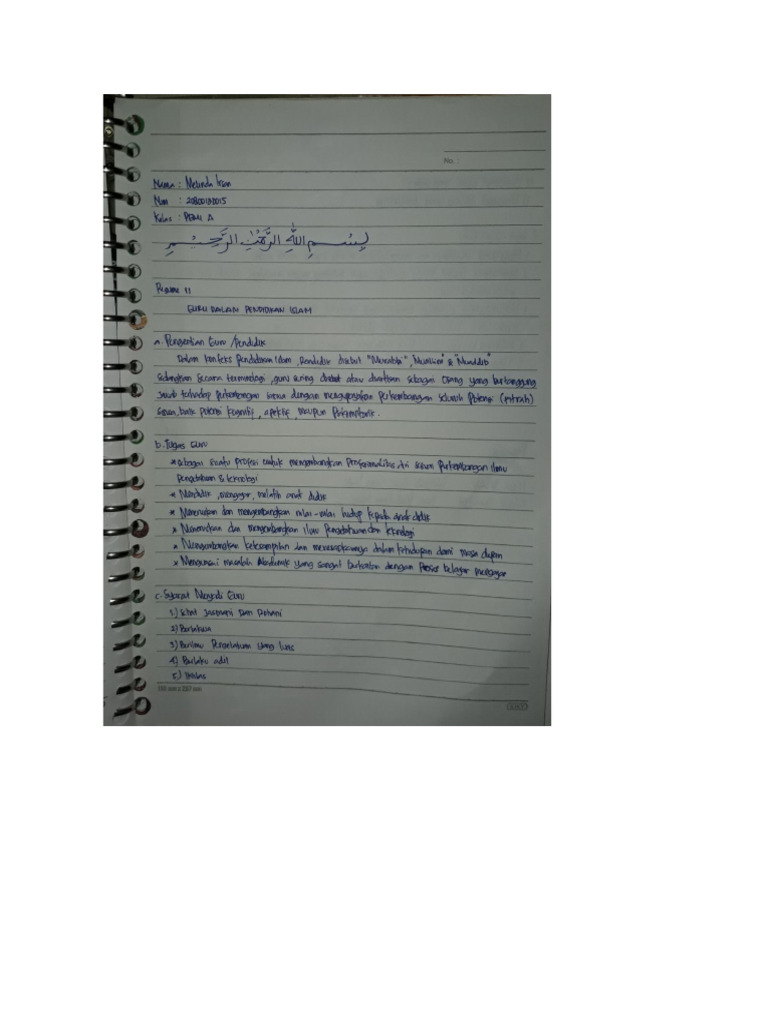 No. :
Nama : Melinda
Nim : 20800110015
Kelas : PBMI A
بِسْمِ اللَّهِ الرَّحْمٰنِ الرَّحِيْمِ
Resume 11
GURU DALAM PENDIDIKAN ISLAM
a. Pengertian Guru / Pendidik
Dalam konteks pendidikan Islam, Pendidik disebut "Murabbi", "Muallim" & "Muaddib"
sedangkan secara terminologi, guru sering disebut atau diartikan sebagai orang yang bertanggung
jawab terhadap perkembangan siswa dengan mengupayakan perkembangan seluruh potensi (fitrah)
siswa, baik potensi kognitif, afektif maupun psikomotorik.
b. Tugas Guru
* sebagai suatu profesi untuk mengembangkan profesionalitas diri sesuai perkembangan ilmu
Pengetahuan & teknologi
* Mendidik, mengajar, melatih anak didik
* Meneruskan dan mengembangkan nilai-nilai hidup kepada anak didik
* Meneruskan dan mengembangkan ilmu Pengetahuan dan teknologi
* Mengembangkan keterampilan dan menerapkannya dalam kehidupan demi masa depan
* Menguasai masalah Akademik yang sangat berkaitan dengan Proses belajar mengajar
c. Syarat Menjadi Guru
1.) Sehat Jasmani Dan Rohani
2) Bertakwa
3) Berilmu Pengetahuan yang luas
4) Berlaku adil
5.) Ikhlas